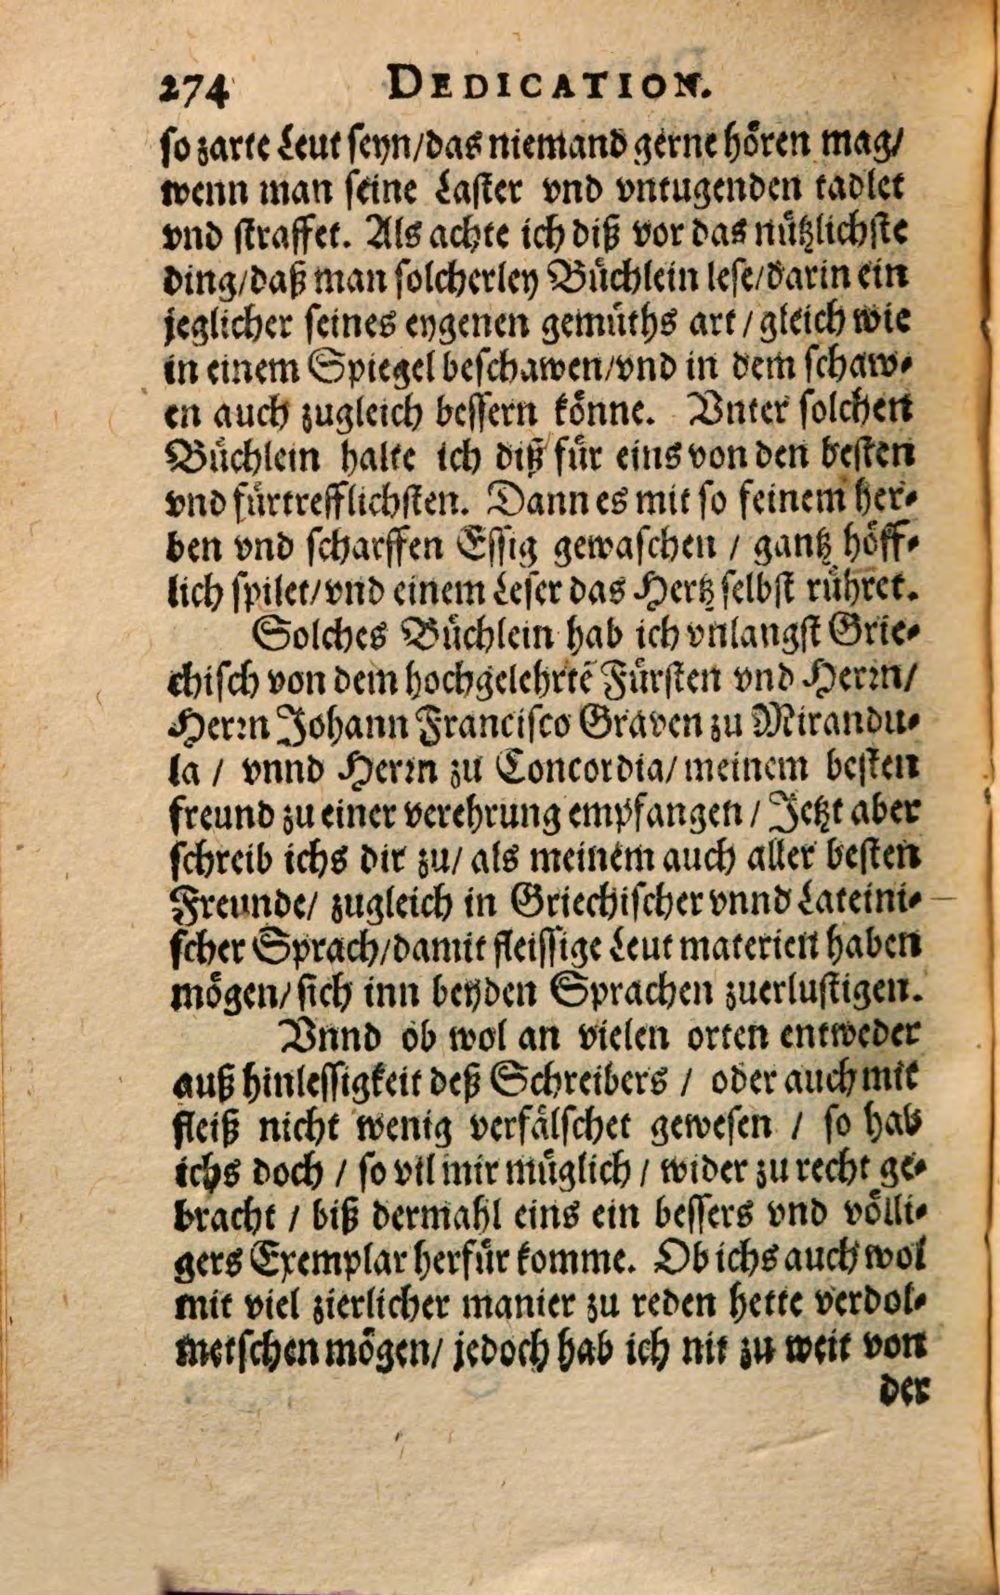 274 DEDICATION.
so zarte Leut seyn/das niemand gerne hören mag/
wenn man seine Laster vnd vntugenden tadlet
vnd straffet. Als achte ich diß vor das nützlichste
ding/daß man solcherley Büchlein lese/darin ein
jeglicher seines eygenen gemüths art/gleich wie
in einem Spiegel beschawen/vnd in dem schaw-
en auch zugleich bessern könne. Vnter solchen
Büchlein halte ich diß für eins von den besten
vnd fürtrefflichsten. Dann es mit so feinem her-
ben vnd scharffen Essig gewaschen / gantz höff-
lich spilet/vnd einem Leser das Hertz selbst rühret.
Solches Büchlein hab ich vnlangst Grie-
chisch von dem hochgelehrtẽ Fürsten vnd Herrn/
Herrn Johann Francisco Graven zu Mirandu-
la / vnnd Herrn zu Concordia/meinem besten
freund zu einer verehrung empfangen / Jetzt aber
schreib ichs dir zu/ als meinem auch aller besten
Freunde/ zugleich in Griechischer vnnd Lateini-
scher Sprach/damit fleissige Leut materien haben
mögen/sich inn beyden Sprachen zuerlustigen.
Vnnd ob wol an vielen orten entweder
auß hinlessigkeit deß Schreibers / oder auch mit
fleiß nicht wenig verfälschet gewesen / so hab
ichs doch / so vil mir müglich / wider zu recht ge-
bracht / biß dermahl eins ein bessers vnd völli-
gers Exemplar herfür komme. Ob ichs auch wol
mit viel zierlicher manier zu reden hette verdol-
metschen mögen/ jedoch hab ich nit zu weit von
der